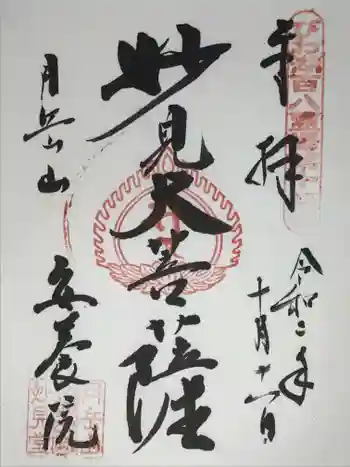 奉拝
令和二年
十月十一日
妙見大菩薩
月岳山
安養院
妙見堂